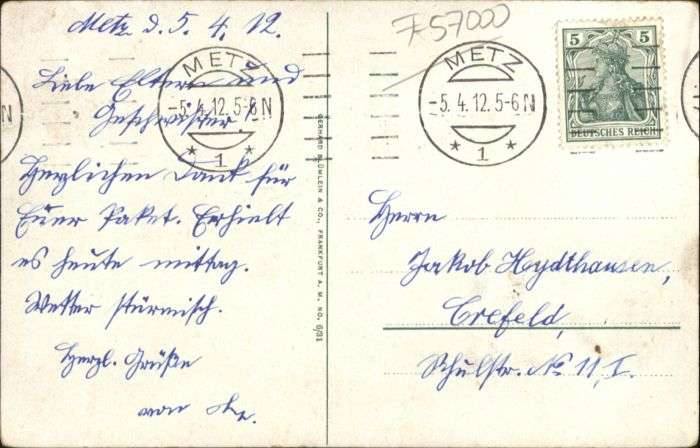 Metz d. 5. 4. 12.
Liebe Eltern und
Geschwister!
Herzlichen Dank für
Euer Paket. Erhielt
es heute mittag.
Wetter stürmisch.
Herzl. Grüße
von
GERHARD BLÜMLEIN & CO., FRANKFURT A. M. NO. 6/31
757000
METZ
-5.4.12.5-6N
* 1 *
METZ
-5.4.12.5-6N
* 1 *
N
5 5
DEUTSCHES REICH
Herrn
Jakob Heydthausen,
Crefeld,
Schulstr. No 11, I.